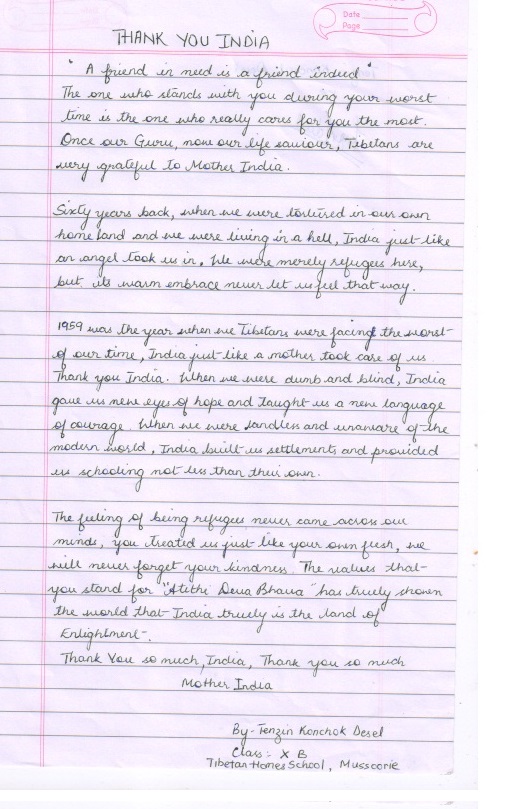 Date
Page
THANK YOU INDIA
" A friend in need is a friend indeed "
The one who stands with you during your worst
time is the one who really cares for you the most.
Once our Guru, now our life saviour, Tibetans are
very grateful to Mother India.
Sixty years back, when we were tortured in our own
homeland and we were living in a hell, India just like
an angel took us in. We were merely refugees here,
but its warm embrace never let us feel that way.
1959 was the year when we Tibetans were facing the worst
of our time, India just like a mother took care of us
Thank you India. When we were dumb and blind, India
gave us new eyes of hope and taught us a new language
of courage. When we were landless and unaware of the
modern world, India built us settlements and provided
us schooling not less than their own.
The feeling of being refugees never came across our
minds, you treated us just like your own flesh, we
will never forget your kindness. The values that
you stand for "Atithi Deva Bhava" has truely shown
the world that India truely is the land of
Enlightment.
Thank You so much, India, Thank you so much
Mother India
By- Tenzin Konchok Desel
Class: X B
Tibetan Homes School, Musscorie